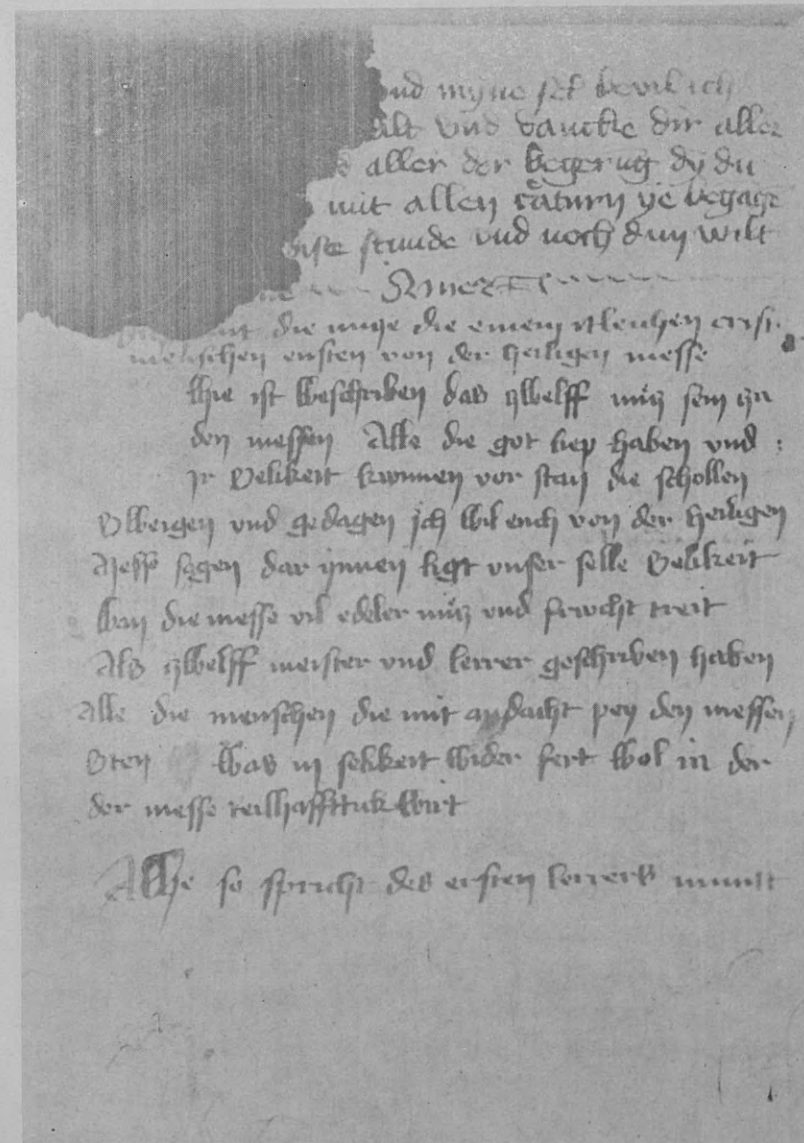 und myne sel bevil ich
vnd dancke dir aller
aller der begerug dy du
mit allen caturn ye begage
stunde vnd noch dun wilt
Amen
die nucze die einem itlichen crist
menschen ensten von der heiligen messe
Hie ist beschriben das zwelff nucz sein zu
den messen Alle die got liep haben vnd
ir selikeit kunnen vor stan die schollen
sweigen vnd gedagen ich wil euch von der heiligen
Messe sagen dar ynnen ligt vnser selle selikeit
wan die messe vil edeler nucz vnd frucht treit
Als zwelff meister vnd lerrer geschriben haben
Alle die menschen die mit andacht pey den messen
sten was in selikeit wider fert wol in der
der messe teilhafftik wirt
Alhie so spricht des ersten lerrers munt